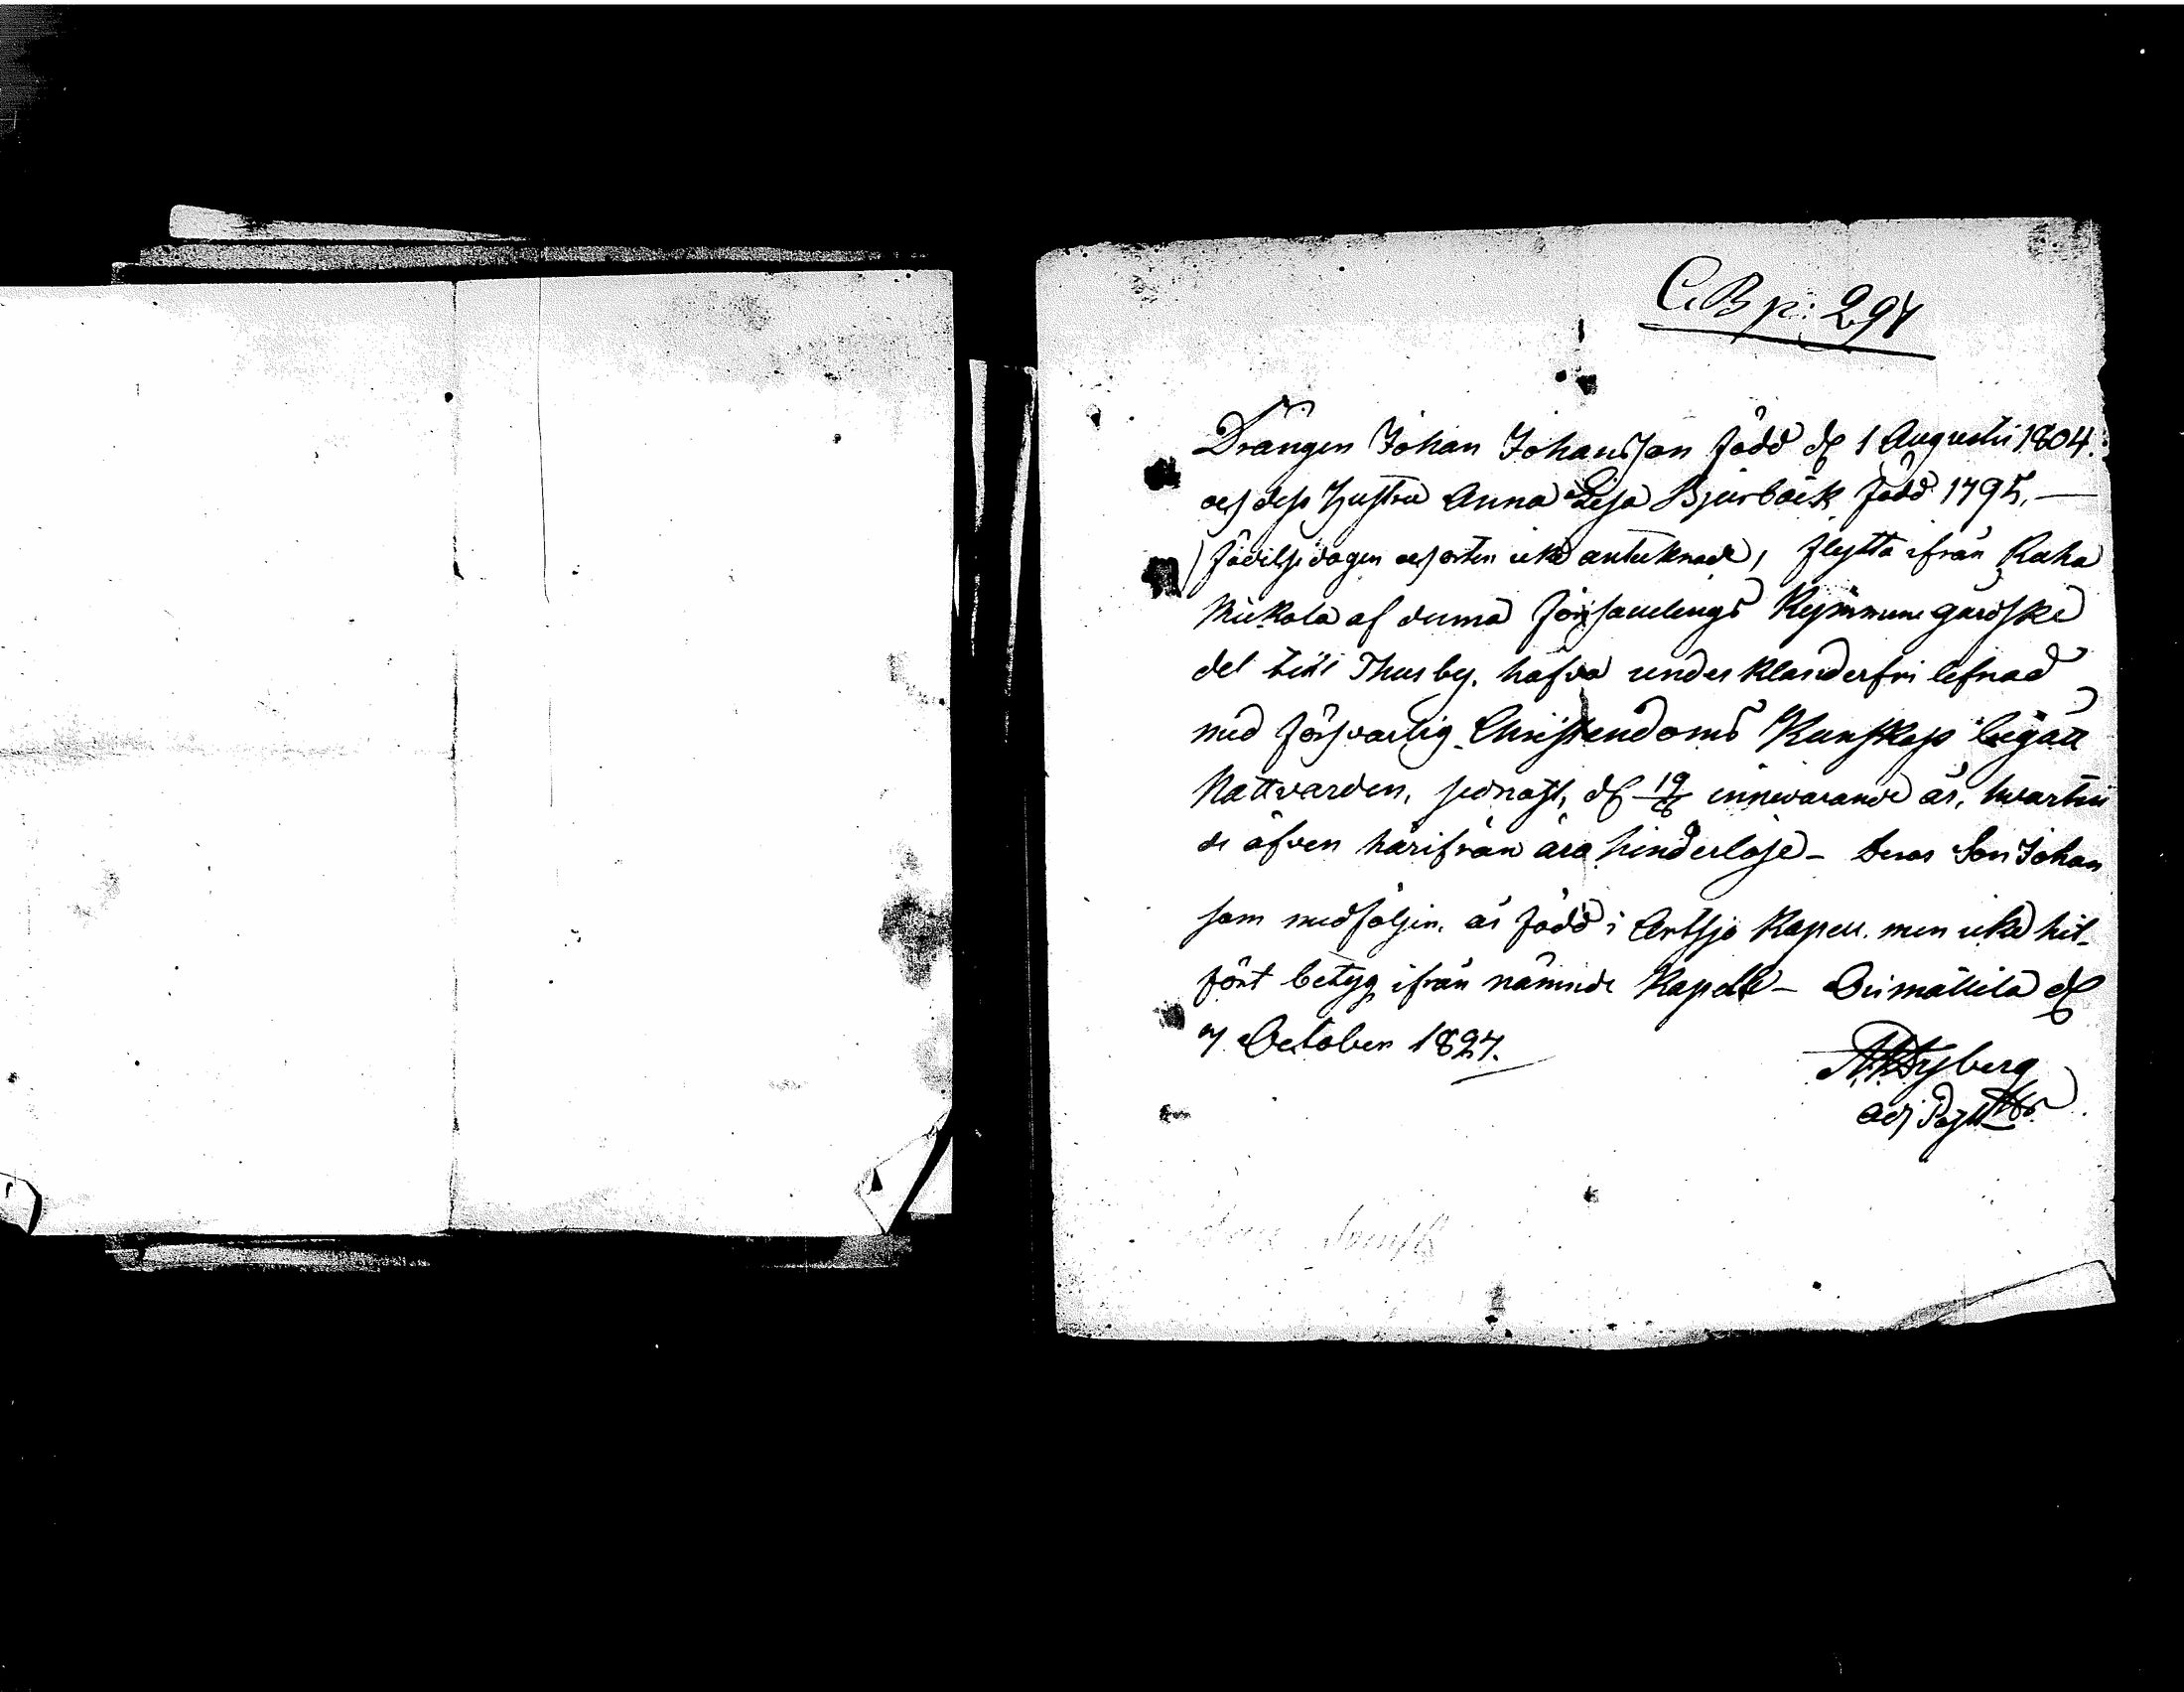 C.B. p: 297
Drängen Johan Johansson född d: 1 Augusti 1804.
och dess Hustru Anna Lisa Björbäck född 1795. —
/födelsedagen och orten icke antecknade, flytta ifrån Raha
Mickola af denna församlings Kymmenegårdske
del till Thusby, hafva under klanderfri lefnad
med försvarlig Christendoms Kunskap begått
Nattvarden, sednast, d: 19/8 innevarande år, hvartill
de äfven härifrån äro hinderlöse – Deras Son Johan
som medföljer, är född i Artsjö Kapell. men icke hit-
fört betyg ifrån nämnde Kapell – Orimattila d:
7 October 1827.
Nyberg
adj Past